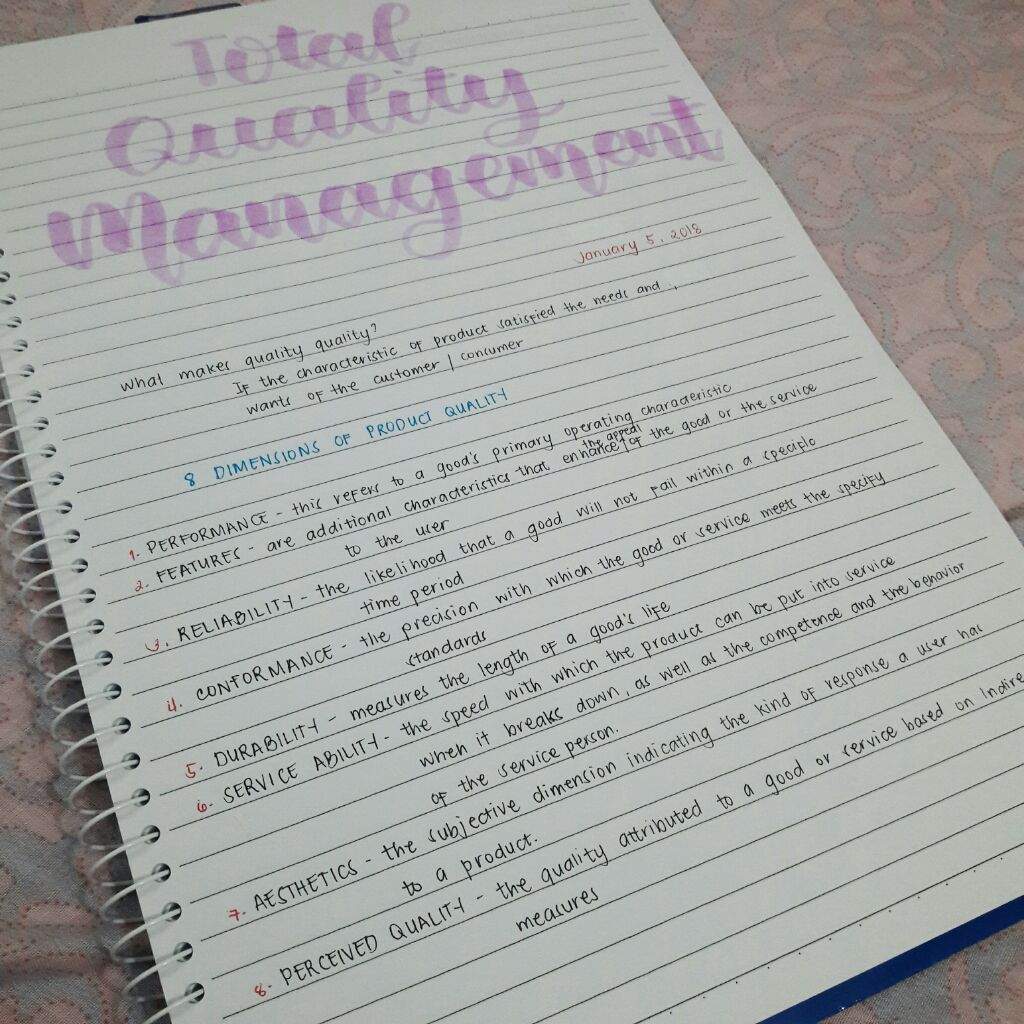 Total
Quality
Management
January 5, 2018
what makes quality quality?
If the characteristic of product satisfied the needs and
wants of the customer / consumer
8 DIMENSIONS OF PRODUCT QUALITY
1. PERFORMANCE - this refers to a good's primary operating characteristic
the appeal
2. FEATURES - are additional characteristics that enhance / of the good or the service
to the user
3. RELIABILITY - the likelihood that a good will not fail within a specific
time period
4. CONFORMANCE - the precision with which the good or service meets the specify
standards
5. DURABILITY - measures the length of a good's life
6. SERVICE ABILITY - the speed with which the product can be put into service
when it breaks down, as well as the competence and the behavior
of the service person.
7. AESTHETICS - the subjective dimension indicating the kind of response a user has
to a product.
8. PERCEIVED QUALITY - the quality attributed to a good or service based on Indire
measures